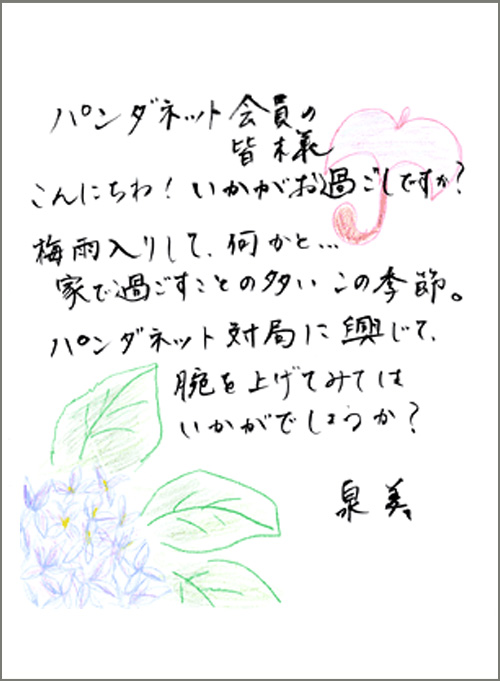 パンダネット会員の
皆様
こんにちわ！いかがお過ごしですか？
梅雨入りして、何かと…
家で過ごすことの多いこの季節。
パンダネット対局に興じて、
腕を上げてみては
いかがでしょうか？
泉美